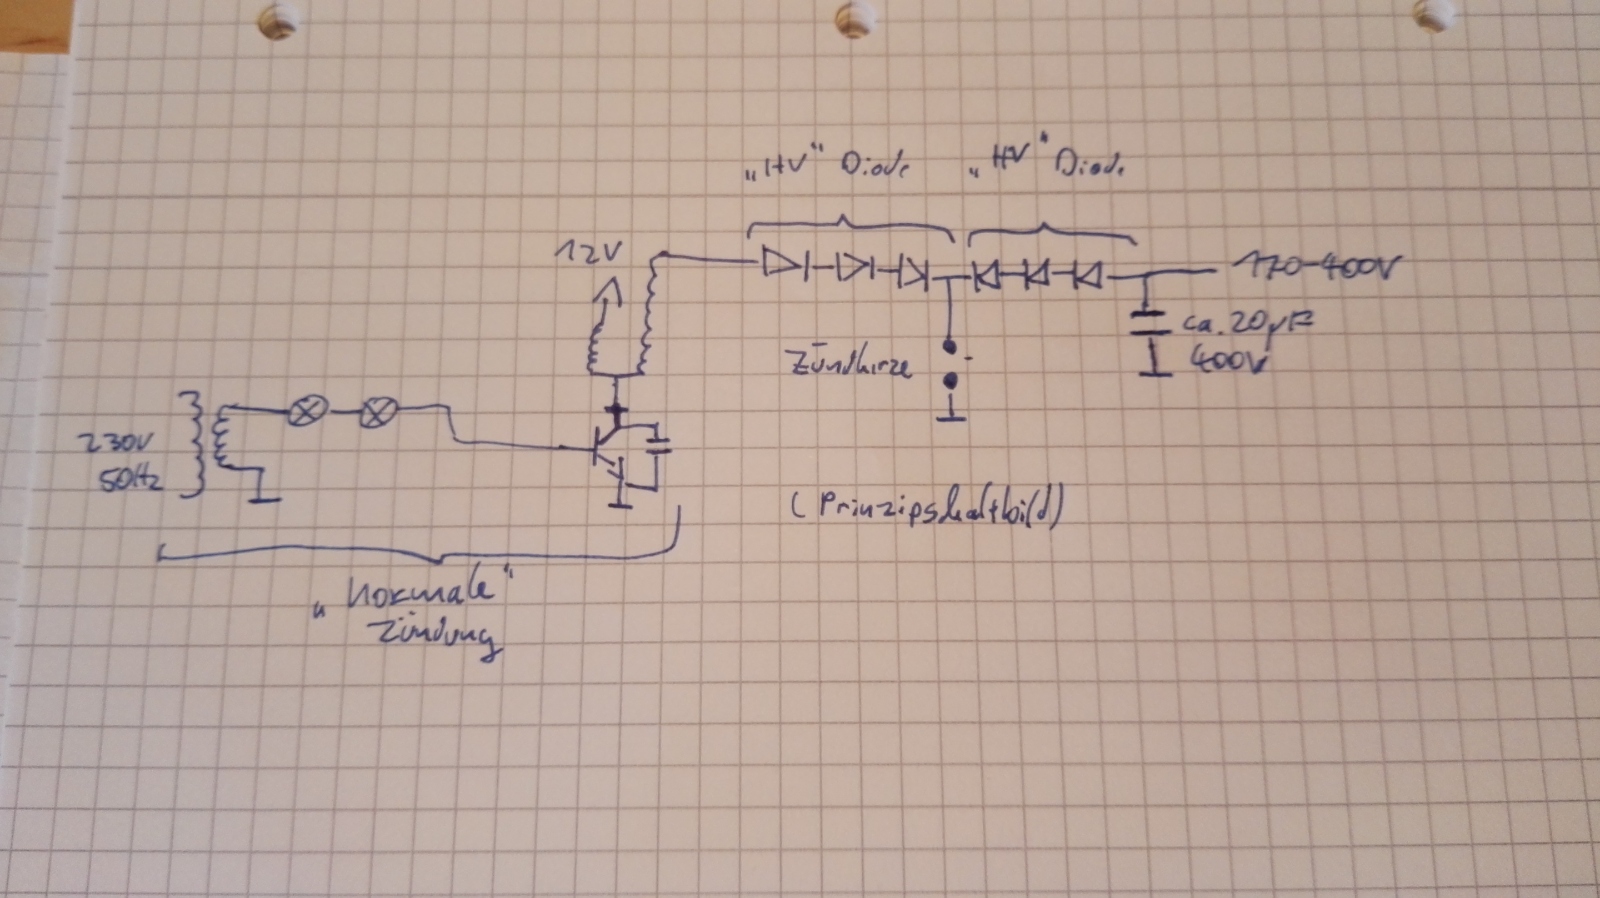 „HV“ Diode „HV“ Diode
12V
170-400V
ca. 20µF
400V
Zündkirze
230V
50Hz
(Prinzipshaltbild)
„Normale“
Zündung